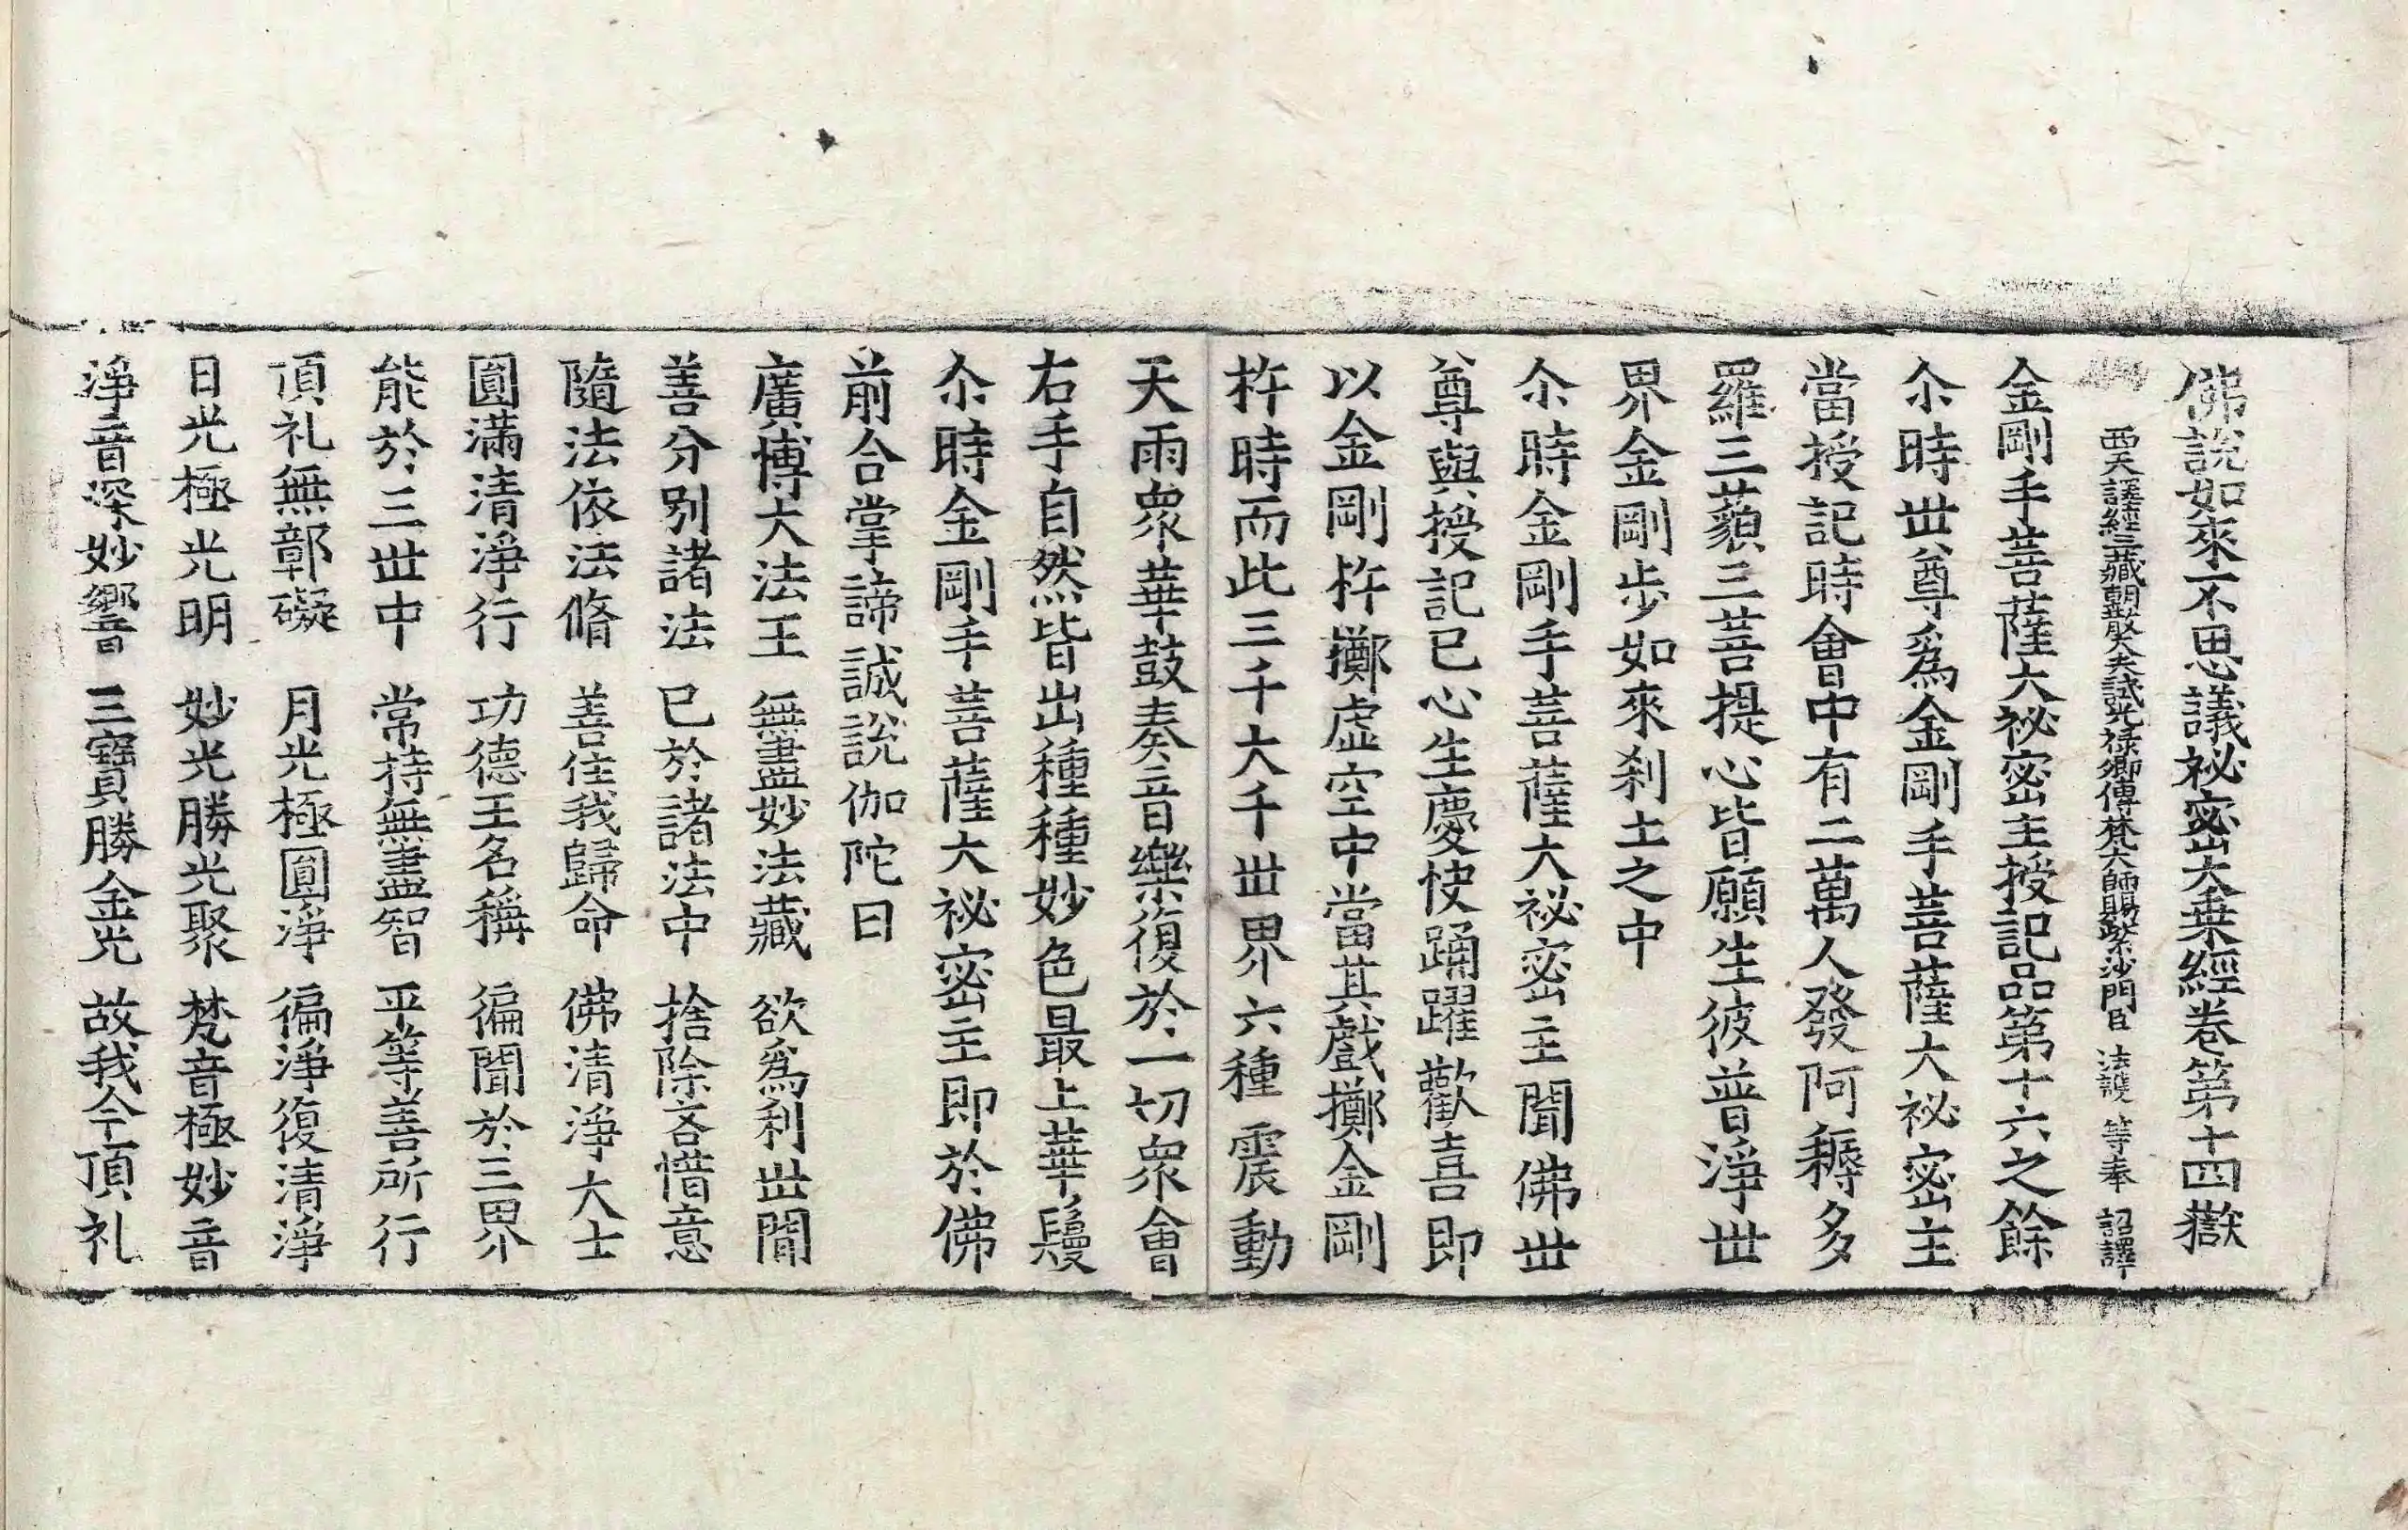 佛說如來不思議祕密大乗經卷第十四嶽
西天譯經三藏朝散大夫試光祿卿傳梵大師賜紫沙門臣 法護 等奉 詔譯
金剛手菩薩大祕密主授記品第十六之餘
尒時世尊爲金剛手菩薩大祕密主
當授記時會中有二萬人發阿耨多
羅三藐三菩提心皆願生彼普淨世
界金剛步如來刹土之中
尒時金剛手菩薩大祕密主聞佛世
尊與授記已心生慶快踊躍歡喜即
以金剛杵擲虛空中當其戲擲金剛
杵時而此三千大千世界六種震動
天雨衆華鼓奏音樂復於一切衆會
右手自然皆出種種妙色最上華鬘
尒時金剛手菩薩大祕密主即於佛
前合掌諦誠說伽陀曰
廣博大法王 無盡妙法藏 欲爲利世間
善分別諸法 已於諸法中 捨除吝惜意
隨法依法脩 善住我歸命 佛清淨大士
圓滿清淨行 功德王名稱 徧聞於三界
能於三世中 常持無盡智 平等善所行
頂礼無鄣礙 月光極圓淨 徧淨復清淨
日光極光明 妙光勝光聚 梵音極妙音
淨音深妙響 三寶勝金光 故我今頂礼